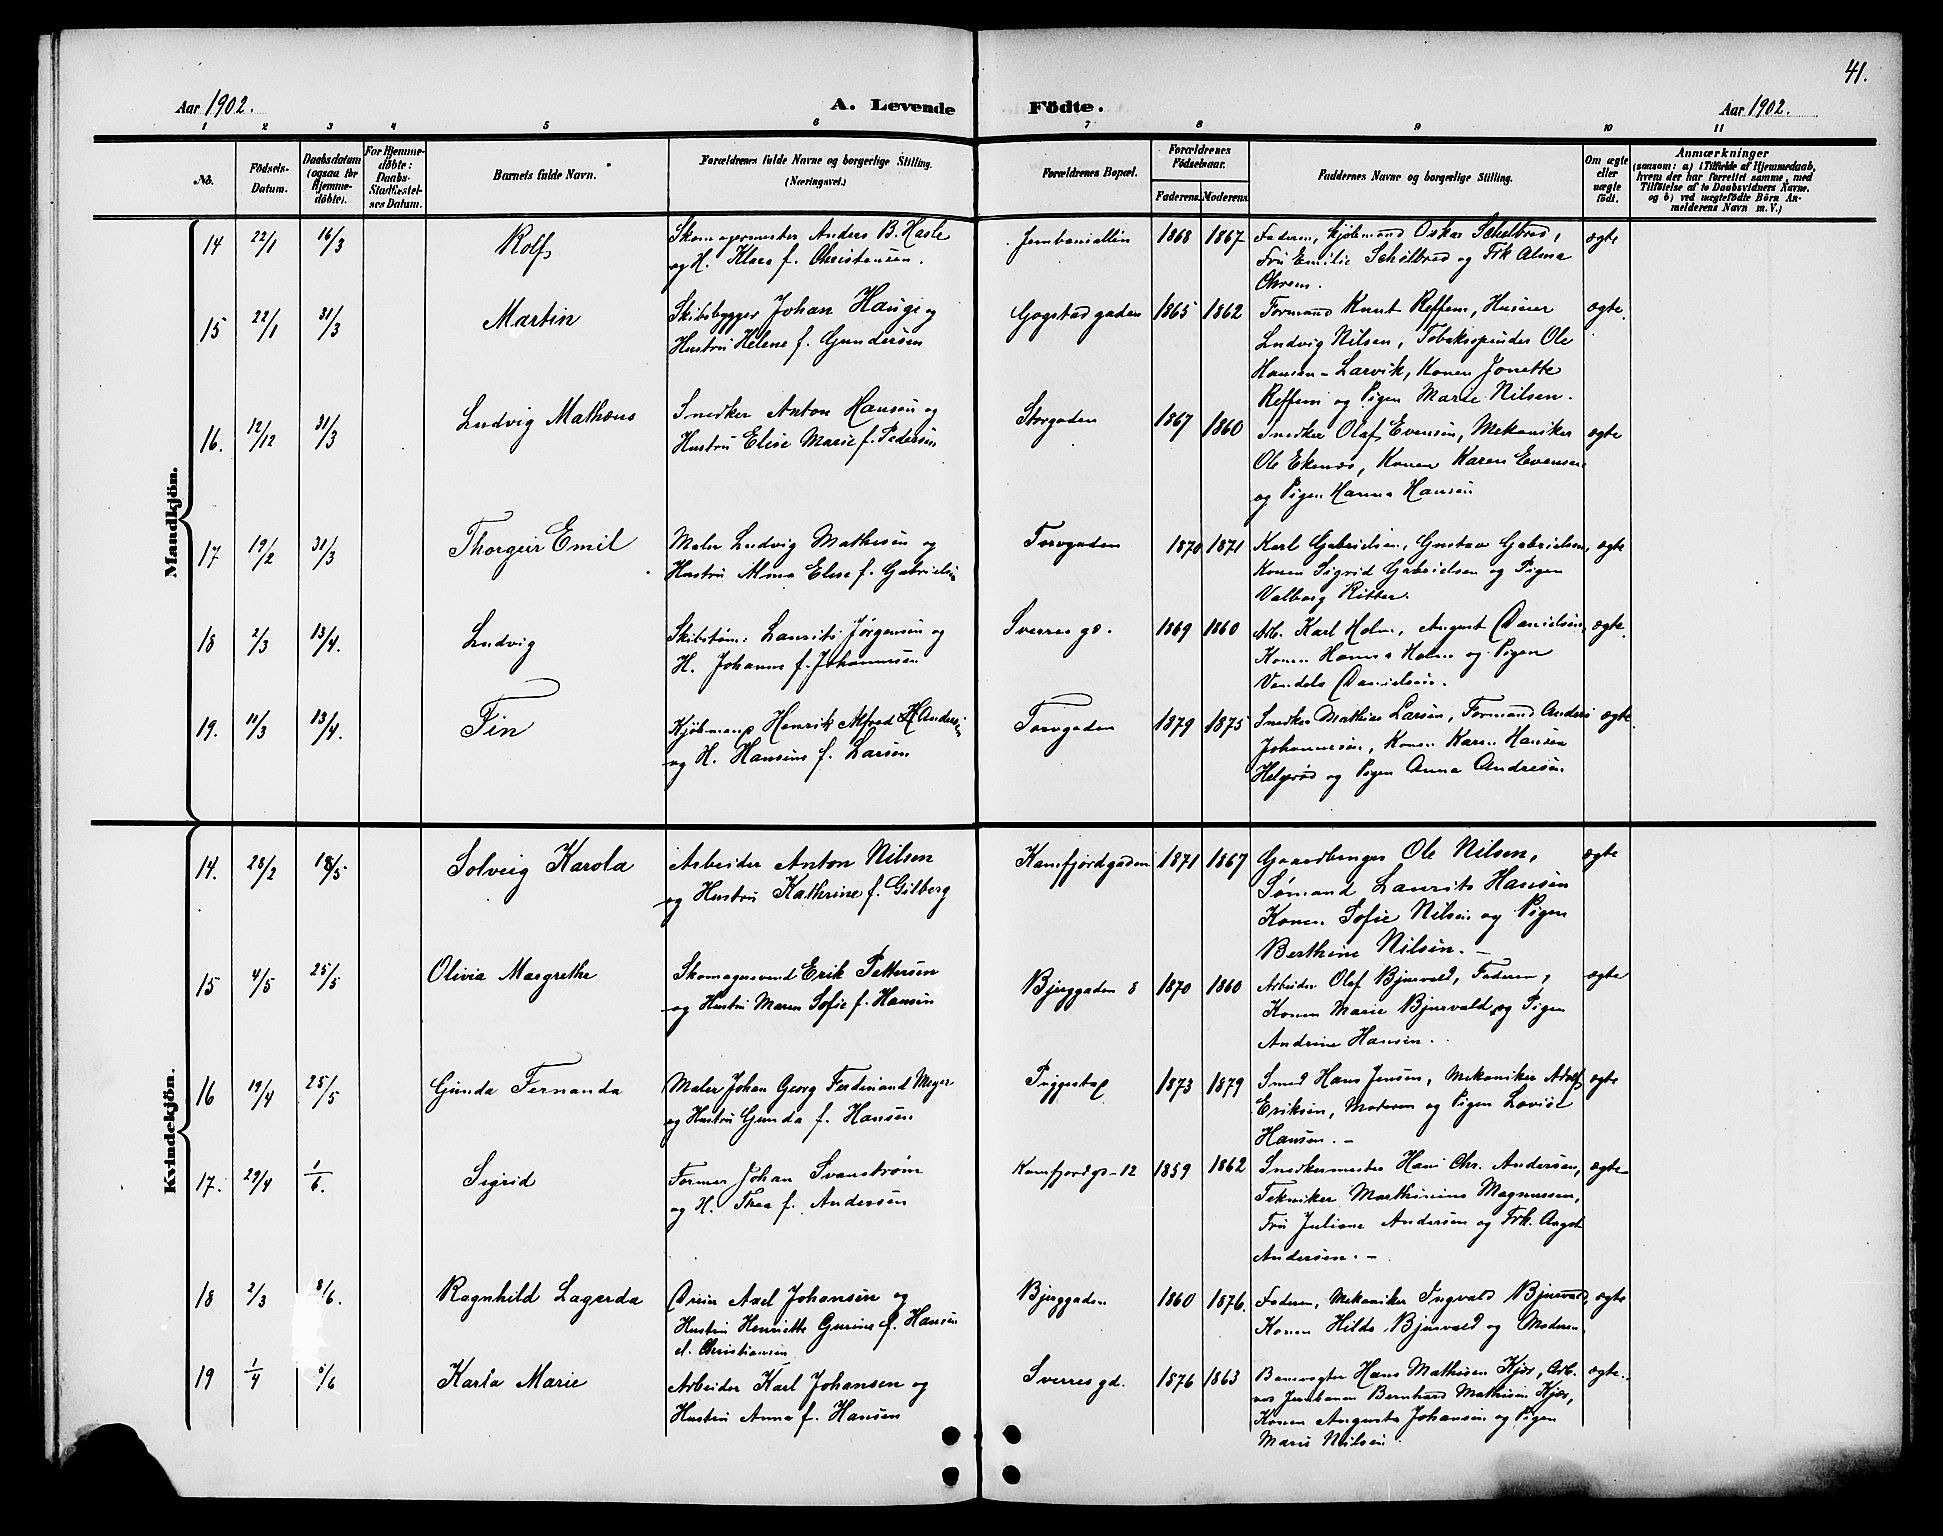 41.
Aar 1902.
A. Levende
Födte.
Aar 1902.
1 2 3 4 5 6 7 8 9 10 11
No.
Födsels-
Datum.
Daabsdatum
(ogsaa for
Hjemme-
døbte).
For Hjemme-
døbte:
Daabs-
Stadfæstel-
ses Datum.
Barnets fulde Navn.
Forældrenes fulde Navne og borgerlige Stilling.
(Næringsvei.)
Forældrenes Bopæl.
Forældrenes
Födselsaar.
Faderens. Moderens.
Faddernes Navne og borgerlige Stilling.
Om ægte
eller
uægte
født.
Anmærkninger
(saasom: a) i Tilfælde af Hjemmedaab,
hvem der har forrettet samme, med
Tilføielse af to Daabsvidners Navne,
og b) ved uægtefødte Börn An-
melderens Navn m. V.)
Mandkjön.
14 22/1 16/3 Rolf
Skomagermester Anders B. Hasle
og H. Klara f. Christensen.
Jernbanealléen 1868 1867
Faderen, Kjøbmand Oskar
Fru Emilie og Frk Alma
ægte
15 22/1 31/3 Martin
Skibsbygger Johan Hauge og
Hustru Helene f. Gundersen
Gogstadgaden 1865 1862
Formand Knut Reffem, Huseier
Ludvig Nilsen, Tobakspinder Ole
Hansen - Larvik, Konen Jonette
Reffem og Pigen Marie Nilsen.
ægte.
16. 12/12 31/3 Ludvig Mathæus
Snedker Anton Hansen og
Hustru Elise Marie f. Pedersen
Storgaden 1867 1860
Snedker Olaf Evensen, Mekaniker
Ole Ekenæs, Konen Karen Evensen
og Pigen Hanna Hansen
ægte
17 19/2 31/3 Thorgeir Emil
Maler Ludvig Mathisen og
Hustru Alma Elise f. Gabrielsen
Torvgaden 1870 1871
Karl Gabrielsen, Gustav Gabrielsen,
Konen Sigrid Gabrielsen og Pigen
Valborg Ritter.
ægte
18 2/3 13/4. Ludvig
Skibstøm: Laurits Jørgensen og
H. Johanne f. Johannesen
Sverres gd. 1869 1860
Arb. Karl Holm, August Danielsen,
Konen Hanna Holm og Pigen
Vendela Danielsen.
ægte.
19. 11/3 13/4. Fin
Kjøbmand Henrik Alfred H. Andersen
og H. Hansine f. Larsen
Torvgaden 1879 1875
Snedker Mathias Larsen, Formand Anders
Johannesen, Konen Karen Hansen
Helgerød og Pigen Anna Andresen
ægte.
Kvindekjön.
14. 28/2 18/5 Solveig Karola
Arbeider Anton Nilsen
og Hustru Kathrine f. Gilberg
Kamfjordgaden 1871 1867
Gaardbruger Ole Nilsen,
Sømand Laurits Hansen
Konen Sofie Nilsen og Pigen
Berthine Nilsen. -
ægte
15 4/5 25/5 Olivia Margrethe
Skomagersvend Erik Pettersen
og Hustru Maren Sofie f. Hansen
Bjerggaden 8 1870 1860
Arbeider Olaf Bjurvald, Faderen,
Konen Marie Bjurvald og Pigen
Andrine Hansen.
ægte
16 19/4 25/5 Gunda Fernanda
Maler Johan Georg Ferdinand Meyer
og Hustru Gunda f. Hansen
Piggestap 1873 1879
Smed Hans Jensen, Mekaniker Adolf
Eriksen, Moderen og Pigen Lovise
Hansen. -
ægte
17. 29/4 1/6. Sigrid
Former Johan Svanstrøm
og H. Thea f. Andersen
Kamfjordgd - 12 1859 1862
Snedkermester Hans Chr. Andersen,
Tekniker Marthinius Magnussen,
Fru Juliane Andersen og Frk. August
Andersen. -
ægte
18 2/3 8/6. Ragnhild Lagerda
Axel Johansen og
Hustru Henriette Gurine f. Hansen
d. Christiansen
Bjerggaden 1860 1876.
Faderen, Mekaniker Ingvald Bjurvald,
Konen Hilda Bjurvald og Moderen.
ægte
19 1/4 /6 Karla Marie
Arbeider Karl Johansen og
Hustru Anna f. Hansen
Sverres gd. 1876 1863
Banevogter Hans Mathisen Kjær, Arb.
ved Jernbanen Bernhard Mathisen Kjær,
Konen Augusta Johansen og Pigen
Marie Nilsen.
ægte.